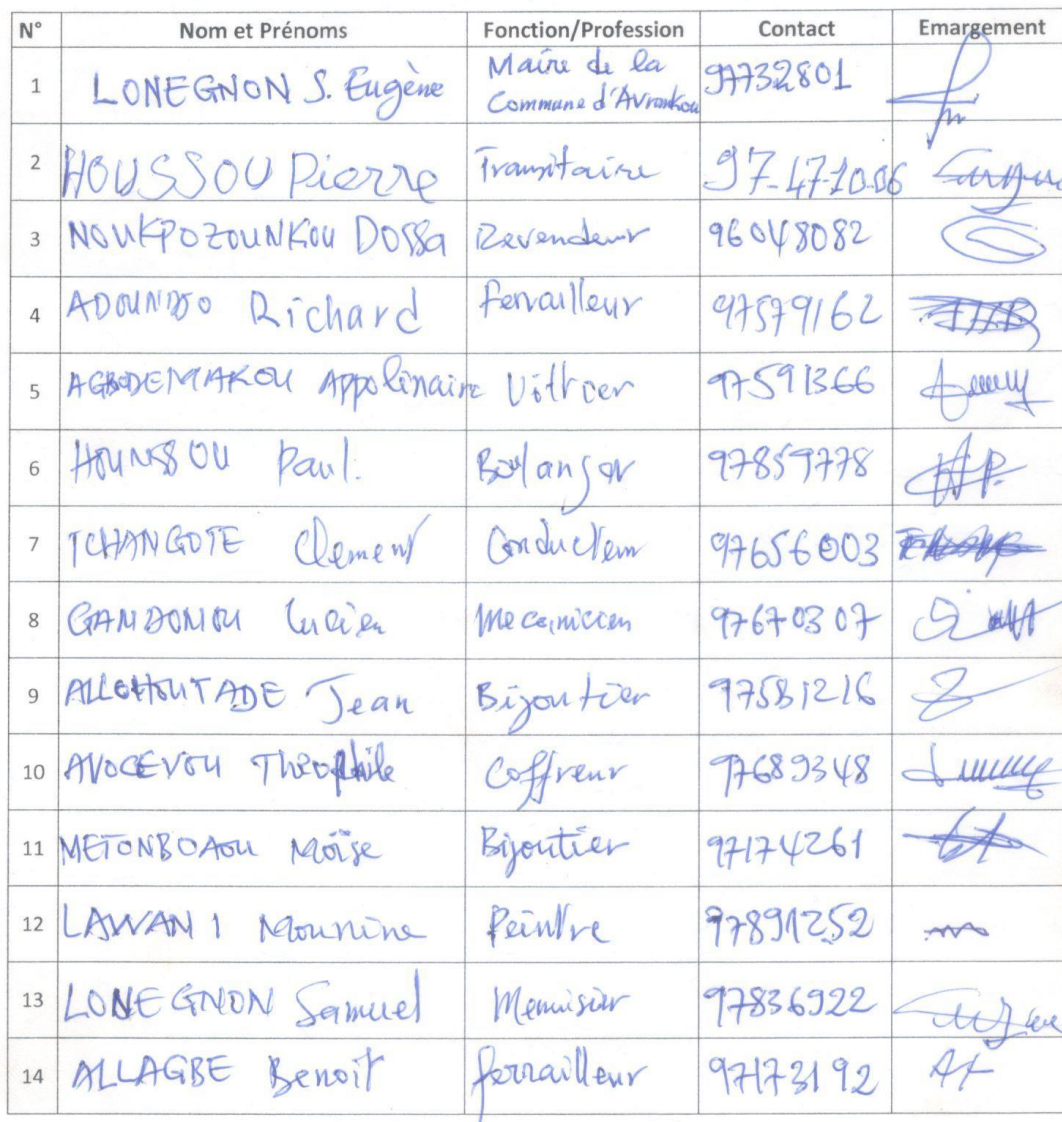 N° Nom et Prénoms Fonction/Profession Contact Emargement
1 LONEGNON S. Eugène Maire de la Commune d'Avrankou 97732801
2 HOUSSOU Pierre Transitaire 97-471006
3 NOUKPOZOUNKOU Dossa Revendeur 96048082
4 ADOUNDJO Richard ferrailleur 97579162
5 AGBODEMAKOU Appolinaire Vitrier 97591366
6 HOUNSSOU Paul. Boulanger 97859778
7 TCHANGOTE Clement Conducteur 97656003
8 GANDONOU Lucien Mecanicien 97670307
9 ALLOHOUTADE Jean Bijoutier 97581216
10 AVOCEVOU Théophile Coffreur 97689348
11 METONBOAOU Moïse Bijoutier 97174261
12 LAWANI Mounine Peintre 97891252
13 LONEGNON Samuel Menuisier 97836922
14 ALLAGBE Benoît ferrailleur 97173192